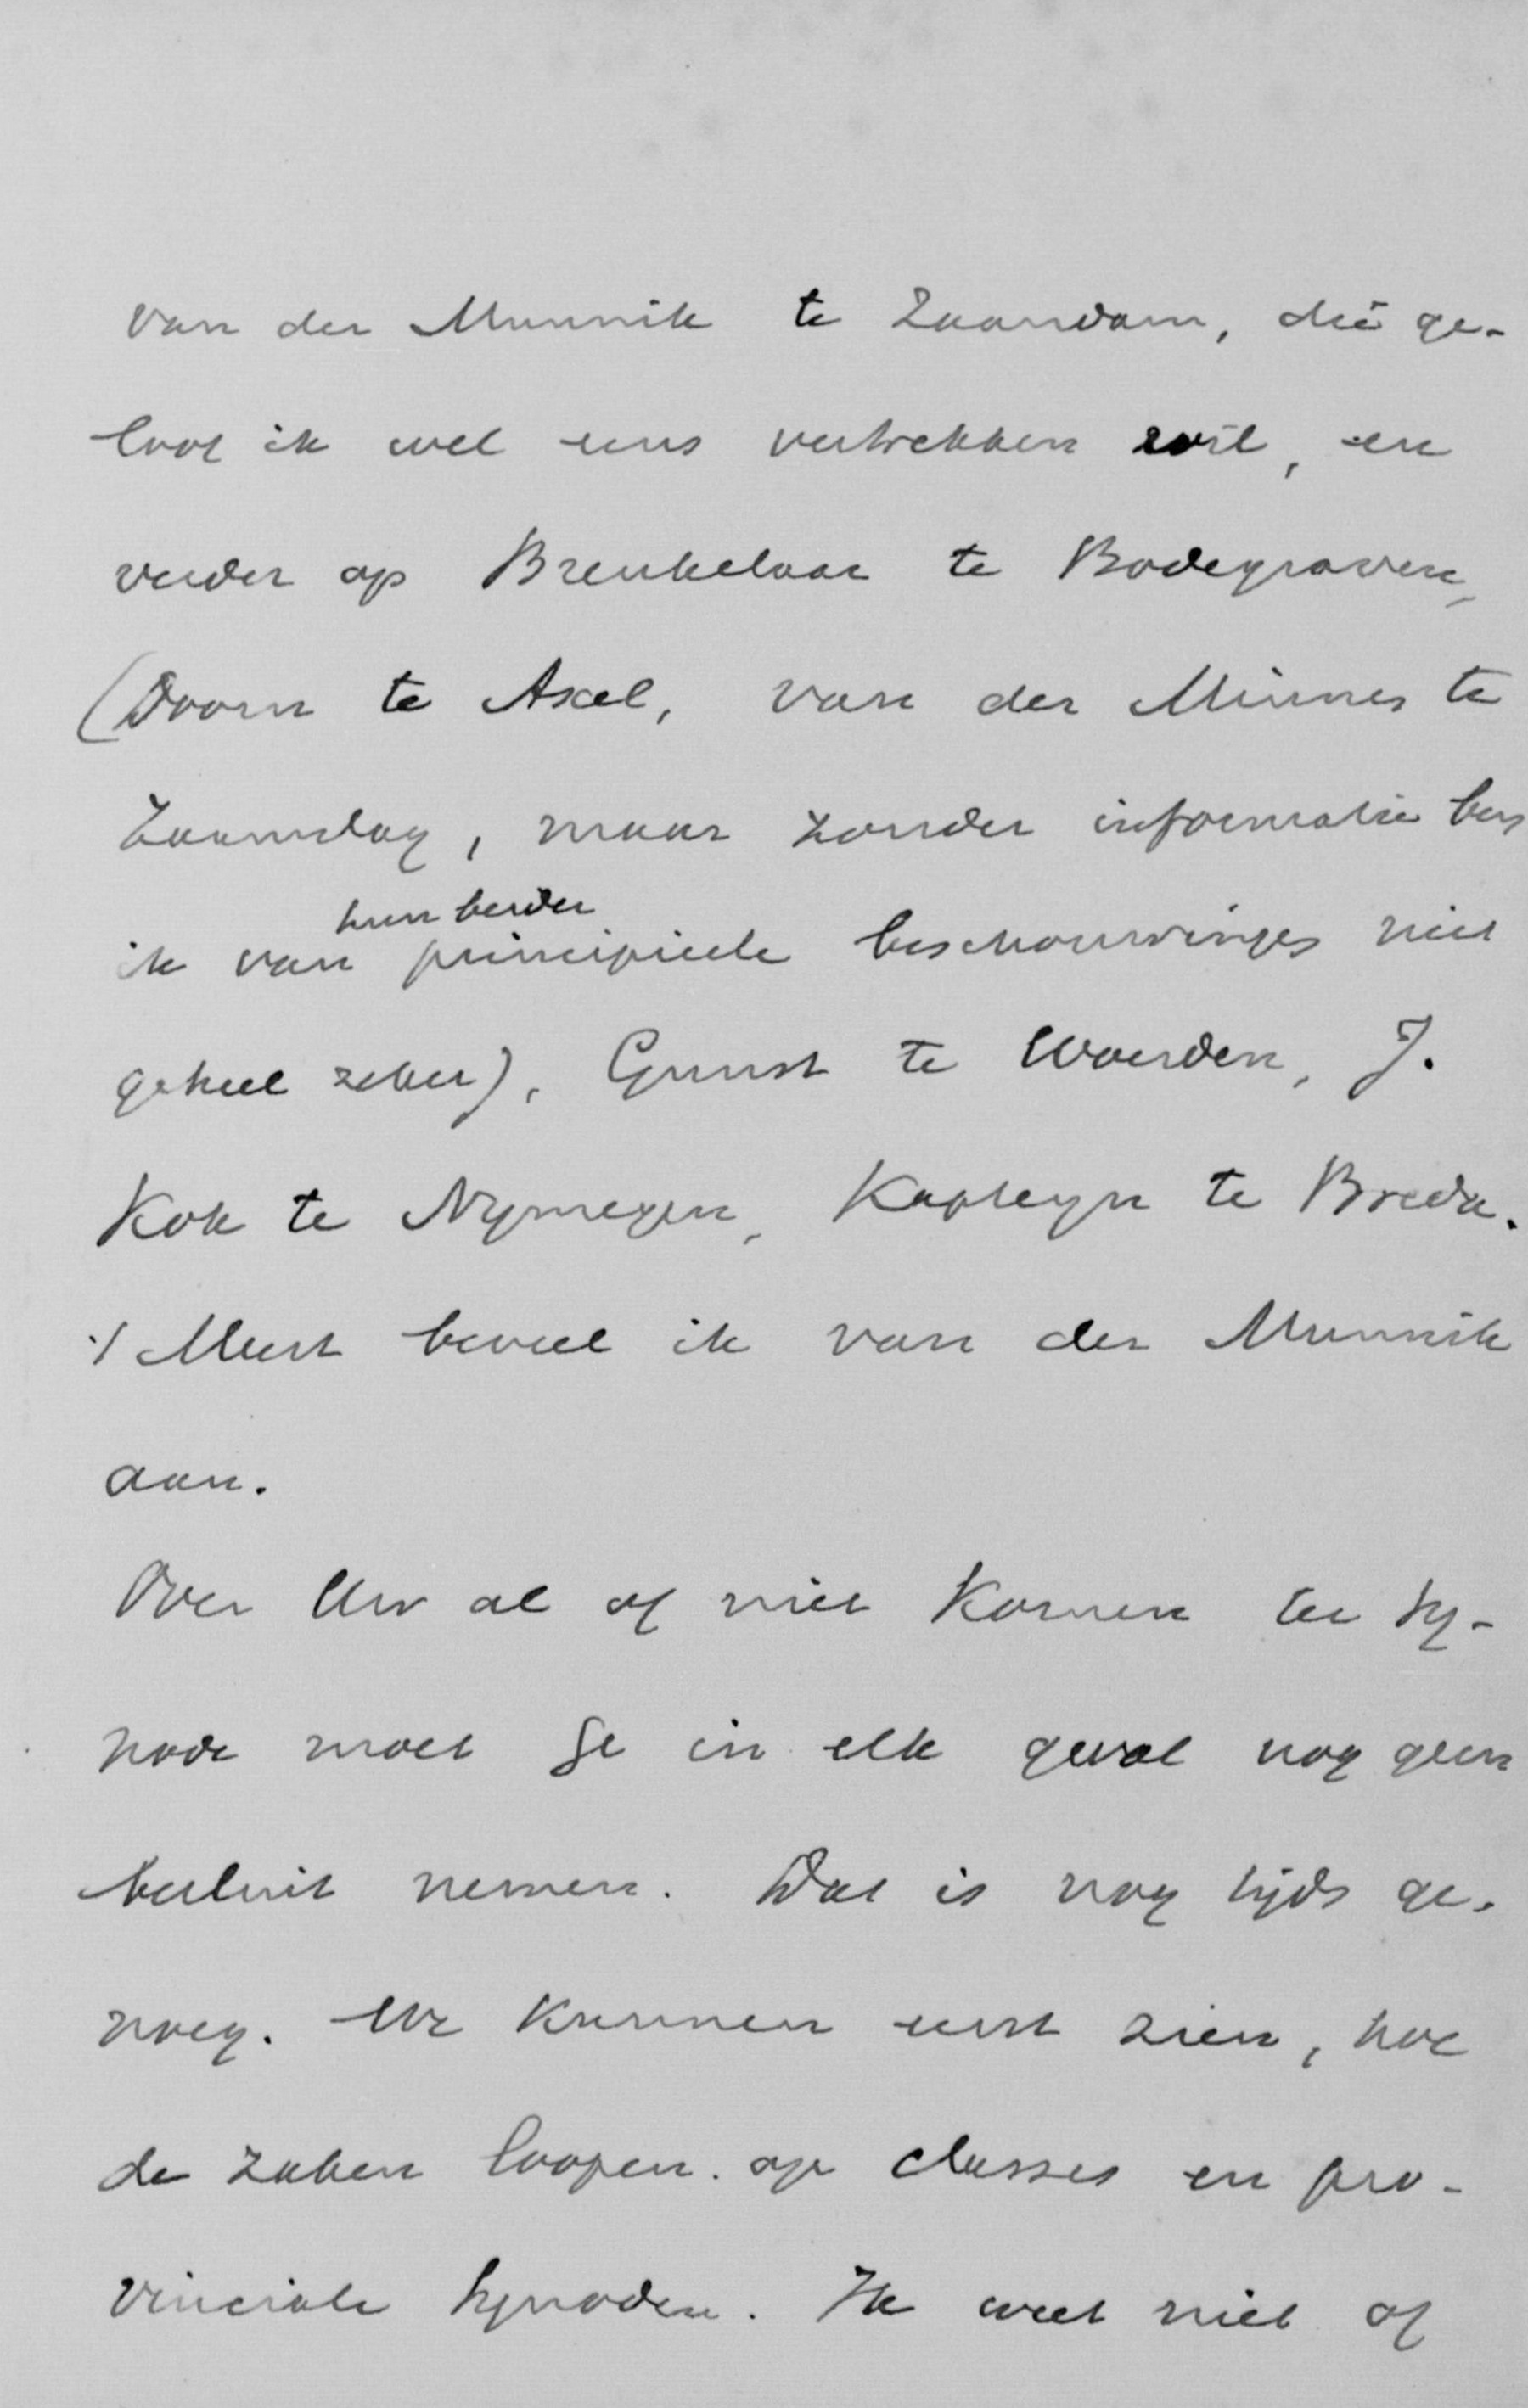 van der Munnik te Zaandam, die ge-
loof ik wel eens vertrekken wil, en
verder op Breukelaar te Bodegraven,
(Doorn te Axel, van der Minnes te
Zaamslag, maar zonder informatie ben
hun beider
ik van principieele beschouwinges niet
geheel zeker), Gunst te Woerden, J.
Kok te Nymegen, Kapteyn te Breda.
Meest beveel ik van der Munnik
aan.
Over Uw al of niet Komen ter Sy-
node moet Ge in elk geval nog geen
besluit nemen. Dat is nog tijds ge-
noeg. We Kunnen eerst zien, hoe
de zaken loopen op classes en pro-
vinciale Synoden. Ik weet niet of